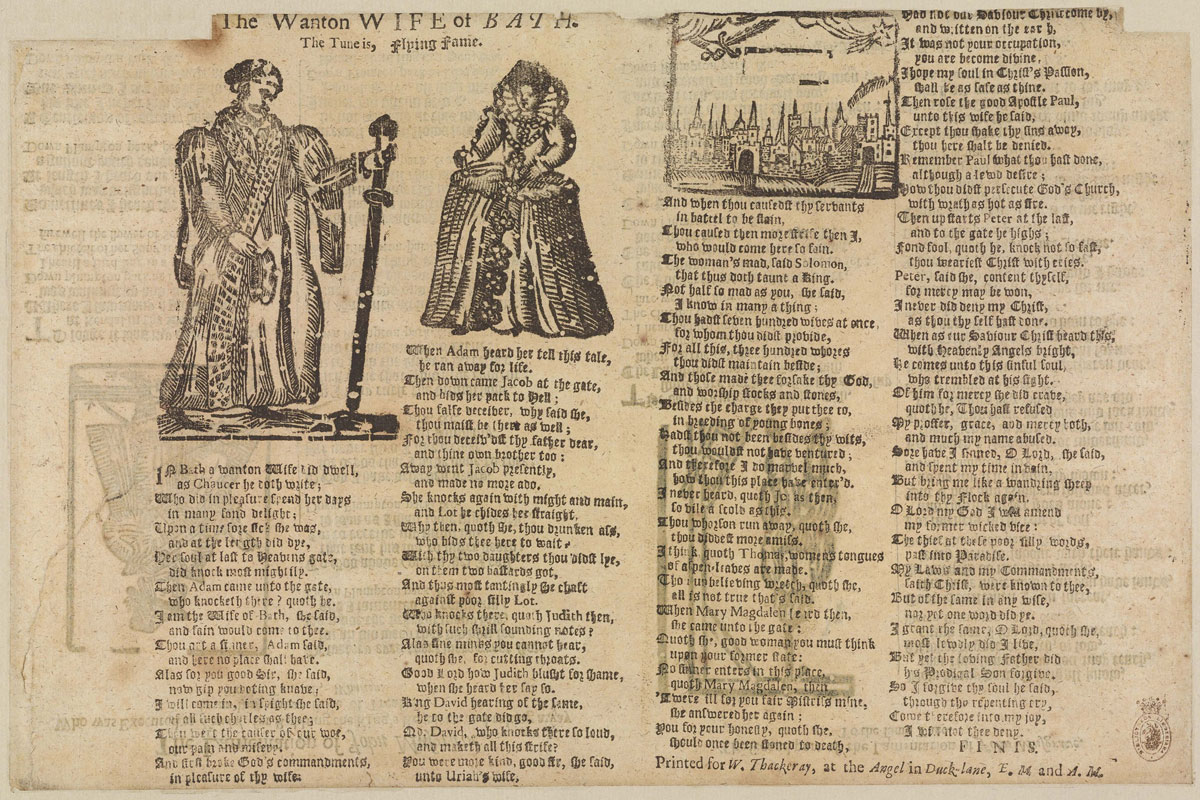 The Wanton WIFE of BATH.
The Tune is, Flying Fame.
IN Bath a wanton Wife did dwell,
as Chaucer he doth write;
Who did in pleasure spend her days
in many fond delight;
Upon a time sore sick she was,
and at the length did dye,
Her soul at last to Heavens gate,
did knock most mightily.
Then Adam came unto the gate,
who knocketh there? quoth he.
I am the Wife of Bath, she said,
and fain would come to thee.
Thou art a sinner, Adam said,
and here no place shall have.
Alas for you good Sir, she said,
now gip you doting knave;
I will come in, in spight she said,
of all such churles as thee;
Thou wert the causer of our woe,
our pain and misery;
And first broke God's commandments,
in pleasure of thy wife:
When Adam heard her tell this tale,
he ran away for life.
Then down came Jacob at the gate,
and bids her pack to Hell;
Thou false deceiver, why said she,
thou maist be there as well;
For thou deceiv'dst thy father dear,
and thine own brother too:
Away went Jacob presently,
and made no more ado.
She knocks again with might and main,
and Lot he chides her straight,
Why then, quoth she, thou drunken ass,
who bids thee here to wait?
With thy two daughters thou didst lye,
on them two bastards got,
And thus most tantingly she chaft
against poor silly Lot.
Who knocks there, quoth Judith then,
with such shrill sounding notes?
Alas fine minks you cannot hear,
quoth she, for cutting throats.
Good Lord how Judith blusht for shame,
when she heard her say so.
King David hearing of the same,
he to the gate did go,
No, David, who knocks there so loud,
and maketh all this strife?
You were more kind, good sir, she said,
unto Uriah's wife,
And when thou causedst thy servants
in battel to be slain,
Thou caused then more strife then I,
who would come here so fain.
The woman's mad, said Solomon,
that thus doth taunt a King.
Not half so mad as you, she said,
I know in many a thing;
Thou hadst seven hundred wives at once,
for whom thou didst provide,
For all this, three hundred whores
thou didst maintain beside;
And those made thee forsake thy God,
and worship stocks and stones,
Besides the charge they put thee to,
in breeding of young bones;
Hadst thou not been besides thy wits,
thou wouldst not have ventured;
And therefore I do marvel much,
how thou this place have enter'd.
I never heard, quoth Jonas then,
so vile a scold as this.
Thou whorson run away, quoth she,
thou diddest more amiss.
I think quoth Thomas, womens tongues
of aspen-leaves are made.
Thou unbelieving wretch, quoth she,
all is not true that's said.
When Mary Magdalen heard then,
she came unto the gate:
Quoth she, good woman you must think
upon your former state:
No sinner enters in this place,
quoth Mary Magdalen, then
'Twere ill for you fair Mistriss mine,
she answered her again;
You for your honesty, quoth she,
should once been stoned to death,
Had not our Saviour Christ come by,
and written on the earth,
It was not your occupation,
you are become divine,
I hope my soul in Christ's Passion,
shall be as safe as thine.
Then rose the good Apostle Paul,
unto this wife he said,
Except thou shake thy sins away,
thou here shalt be denied.
Remember Paul what thou hast done,
although a lewd desire;
How thou didst persecute God's Church,
with wrath as hot as fire.
Then up starts Peter at the last,
and to the gate he highs;
Fond fool, quoth he, knock not so fast,
thou weariest Christ with cries.
Peter, said she, content thyself,
for mercy may be won,
I never did deny my Christ,
as thou thy self hast done.
When as our Saviour Christ heard this,
with Heavenly Angels bright,
He comes unto this sinful soul,
who trembled at his sight.
Of him for mercy she did crave,
quoth he, Thou hast refused
My proffer, grace, and mercy both,
and much my name abused.
Sore have I sinned, O Lord, she said,
and spent my time in vain,
But bring me like a wandring sheep
into thy Flock again.
O Lord my God I will amend
my former wicked vice:
The thief at these poor silly words,
past into Paradise.
My Laws and my Commandments,
saith Christ, were known to thee,
But of the same in any wise,
nor yet one word did ye.
I grant the same, O Lord, quoth she,
most lewdly did I live,
But yet the loving Father did
his Prodigal Son forgive.
So I forgive thy soul he said,
through thy repenting cry,
Come therefore into my joy,
I will not thee deny.
FINIS.
Printed for W. Thackeray, at the Angel in Duck-lane, E. M. and A. M.